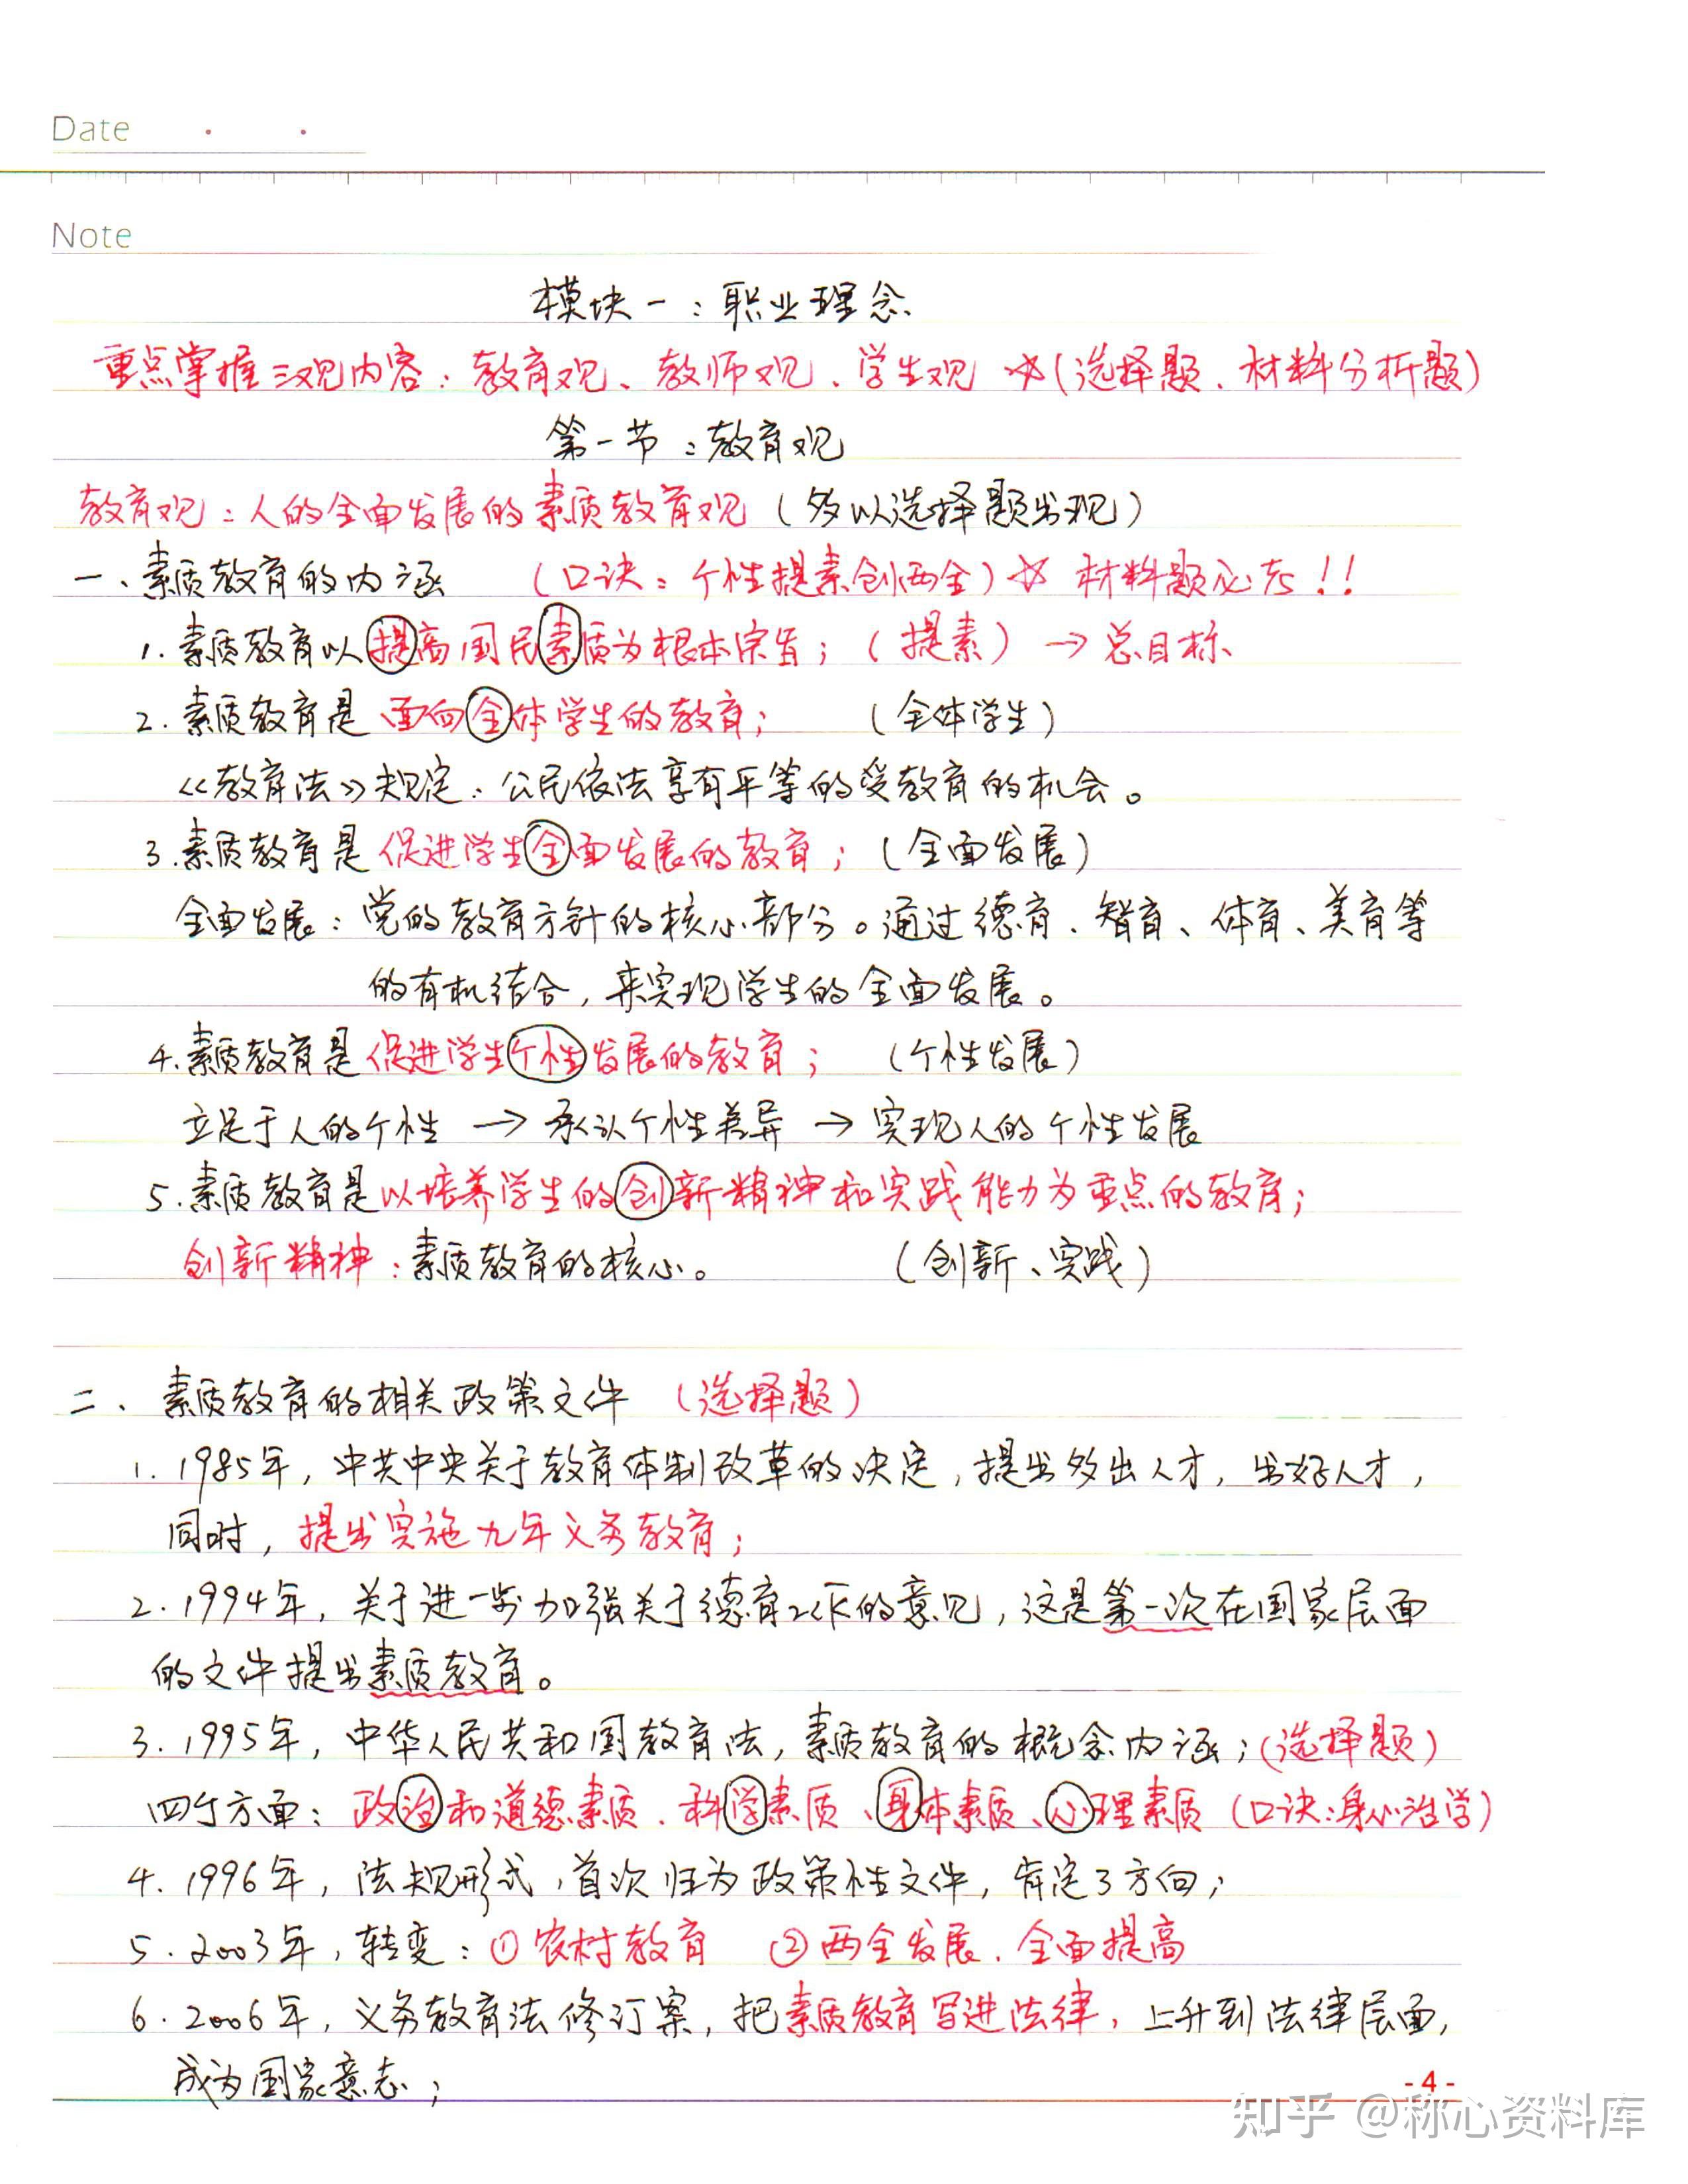 Date
Note
模块一：职业理念
重点掌握三观内容：教育观、教师观、学生观 ☆(选择题、材料分析题)
第一节：教育观
教育观：人的全面发展的素质教育观（多以选择题出现）
一、素质教育的内涵 （口诀：个性提素创两全）☆ 材料题必考！！
1.素质教育以提高国民素质为根本宗旨；（提素）→总目标
2.素质教育是面向全体学生的教育；（全体学生）
《教育法》规定：公民依法享有平等的受教育的机会。
3.素质教育是促进学生全面发展的教育；（全面发展）
全面发展：党的教育方针的核心部分。通过德育、智育、体育、美育等
的有机结合，来实现学生的全面发展。
4.素质教育是促进学生个性发展的教育；（个性发展）
立足于人的个性 → 承认个性差异 → 实现人的个性发展
5.素质教育是以培养学生的创新精神和实践能力为重点的教育；
创新精神：素质教育的核心。（创新、实践）
二、素质教育的相关政策文件（选择题）
1.1985年，中共中央关于教育体制改革的决定，提出多出人才，出好人才，
同时，提出实施九年义务教育；
2.1994年，关于进一步加强关于德育工作的意见，这是第一次在国家层面
的文件提出素质教育。
3.1995年，中华人民共和国教育法，素质教育的概念内涵；（选择题）
四个方面：政治和道德素质、科学素质、身体素质、心理素质（口诀：身心治学）
4.1996年，法规形式，首次归为政策性文件，肯定了方向；
5.2003年，转变：①农村教育 ②两全发展、全面提高
6.2006年，义务教育法修订案，把素质教育写进法律，上升到法律层面，
成为国家意志；
-4-
知乎 @称心资料库